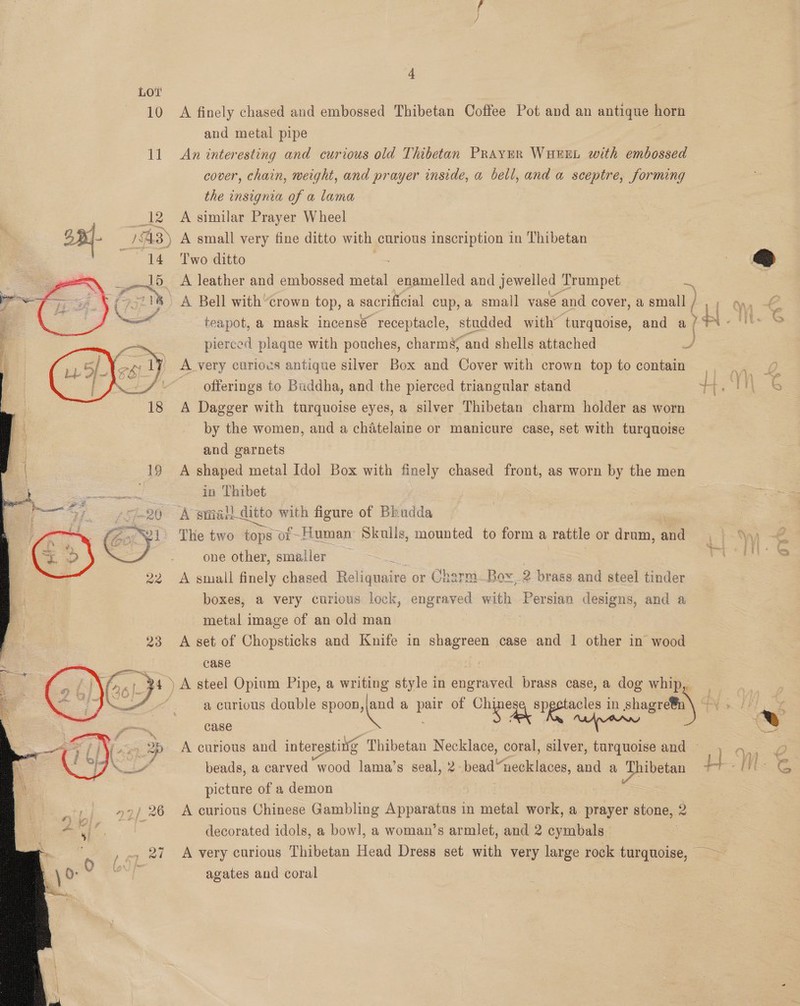 4
LOT
10 A finely chased and embossed Thibetan Coffee Pot and an antique horn
and metal pipe
11 An interesting and curious old Thibetan PRAYER WHEEL with embossed
cover, chain, weight, and prayer inside, a bell, and a sceptre, forming
the insignia of a lama
12 A similar Prayer Wheel
13 A small very fine ditto with curious inscription in Thibetan
14 Two ditto
15 A leather and embossed metal enamelled and jewelled Trumpet
16 A Bell with crown top, a sacrificial cup, a small vase and cover, a small
teapot, a mask incense receptacle, studded with turquoise, and a
pierced plaque with pouches, charms, and shells attached
17 A very curious antique silver Box and Cover with crown top to contain
offerings to Buddha, and the pierced triangular stand
18 A Dagger with turquoise eyes, a silver Thibetan charm holder as worn
by the women, and a châtelaine or manicure case, set with turquoise
and garnets
19 A shaped metal Idol Box with finely chased front, as worn by the men
in Thibet
20 A small ditto with figure of Bhudda
21 The two tops of Human Skulls, mounted to form a rattle or drum, and
one other, smaller
22 A small finely chased Reliquaire or Charm Box, 2 brass and steel tinder
boxes, a very curious lock, engraved with Persian designs, and a
metal image of an old man
23 A set of Chopsticks and Knife in shagreen case and 1 other in wood
case
24 A steel Opium Pipe, a writing style in engraved brass case, a dog whip,
a curious double spoon, and a pair of Chinese spectacles in shagreen
case
25 A curious and interesting Thibetan Necklace, coral, silver, turquoise and
beads, a carved wood lama's seal, 2 bead necklaces, and a Thibetan
picture of a demon
26 A curious Chinese Gambling Apparatus in metal work, a prayer stone, 2
decorated idols, a bowl, a woman's armlet, and 2 cymbals
27 A very curious Thibetan Head Dress set with very large rock turquoise,
agates and coral